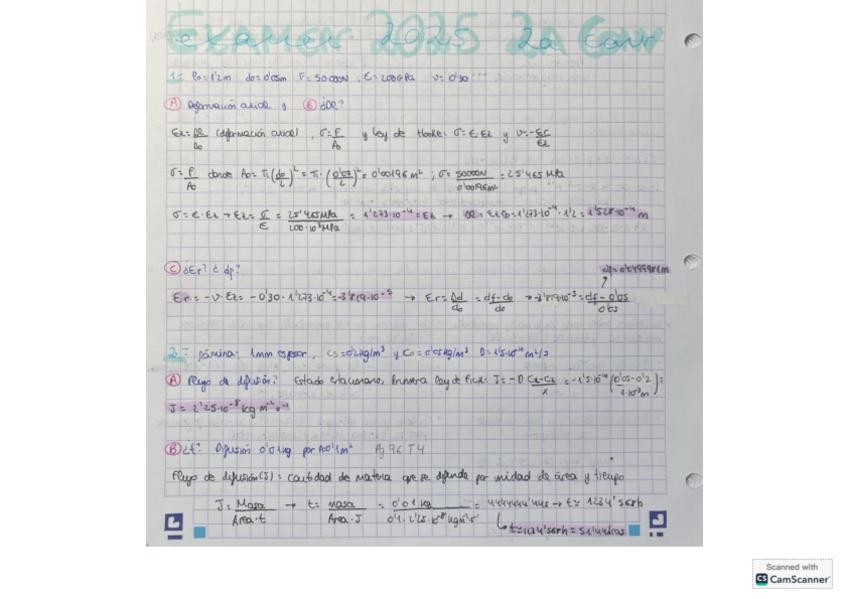 Examen 2025 2a Conv
1.- l₀=1'2m d₀=0'05m F=50000N, E=200GPa ν=0'30
Ⓐ Deformación axial y Ⓑ ¿Δl?
Ez=Δl/l₀ (deformación axial), σ=F/A₀ y ley de Hooke: σ=E·Ez y ν=-Er/Ez
σ=F/A₀ donde A₀=π(d₀/2)²=π·(0'05/2)²=0'00196m²; σ=50000N/0'00196m²=25'465MPa
σ=E·Ez→Ez=σ/E=25'465MPa/200·10³MPa=1'273·10⁻⁴=Ez → Δl=Ez·l₀=1'273·10⁻⁴·1'2=1'528·10⁻⁴m
df=0'0499981m
Ⓒ ¿Er? ¿df?
Er=-ν·Ez=-0'30·1'273·10⁻⁴=-3'819·10⁻⁵ → Er=Δd/d₀=df-d₀/d₀→-3'819·10⁻⁵=df-0'05/0'05
2.- Lámina: 1mm espesor, Cs=0'2kg/m³ y C₀=0'05kg/m³ D=1'5·10⁻¹⁰m²/s
Ⓐ Flujo de difusión? Estado estacionario, Primera Ley de Fick: J=-D C₂-C₁/x=-1'5·10⁻¹⁰(0'05-0'2/1·10⁻³m)=
J=2'25·10⁻⁸kg m⁻²s⁻¹
Ⓑ ¿t? Difusión 0'01kg por A=0'1m² Pg 96 T4
Flujo de difusión(J)=cantidad de materia que se difunde por unidad de área y tiempo
J=Masa/Área·t → t=masa/Área·J=0'01kg/0'1·2'25·10⁻⁸kgm⁻²s⁻¹=4444444'44s→t=1234'56h
t=1234'56h=51'44días
Scanned with
CS CamScanner